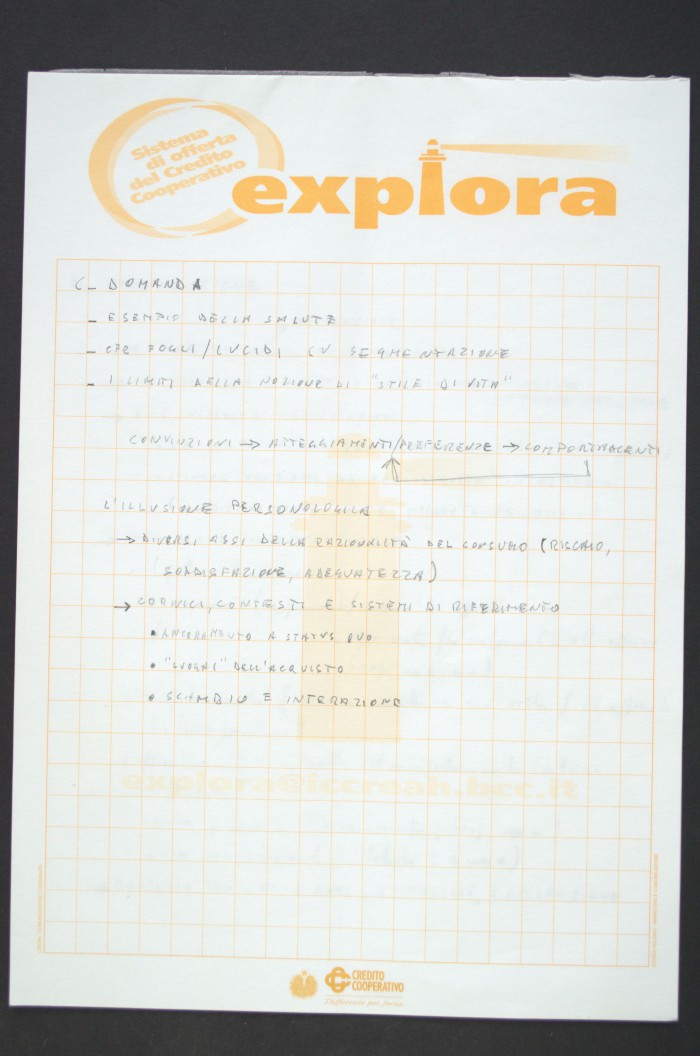 Sistema
di offerta
del Credito
Cooperativo
explora
C_ DOMANDA
_ ESEMPIO DELLA SALUTE
_ CFR FOGLI/LUCIDI SU SEGMENTAZIONE
_ I LIMITI DELLA NOZIONE DI "STILE DI VITA"
CONVINZIONI → ATTEGGIAMENTI/PREFERENZE → COMPORTAMENTI
L'ILLUSIONE PERSONOLOGICA
→ DIVERSI ASSI DELLA RAZIONALITÀ DEL CONSUMO (RISCHIO,
SODDISFAZIONE, ADEGUATEZZA)
→ CORNICI, CONTESTI E SISTEMI DI RIFERIMENTO
• ANCORAMENTO A STATUS QUO
• "LUOGHI" DELL'ACQUISTO
• SCAMBIO E INTERAZIONE
explora@iccreah.bcc.it
CREDITO
COOPERATIVO
Differente per forza.